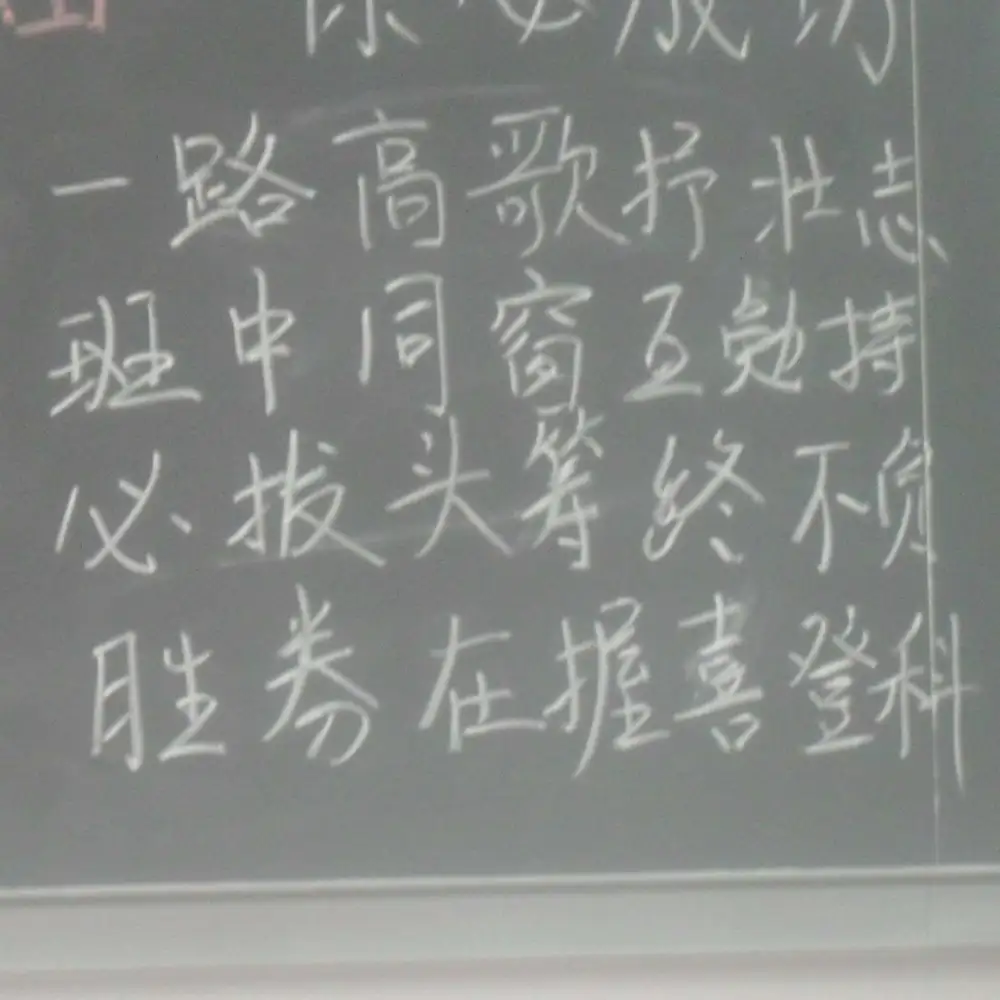 你必成功
一路高歌抒壮志
班中同窗互勉持
必拔头筹终不负
胜券在握喜登科